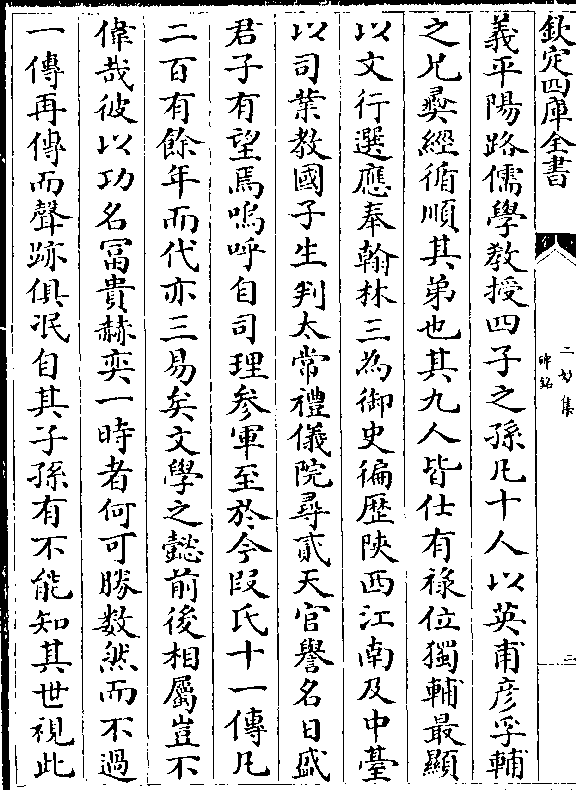 欽定四庫全書
二妙集
碑銘
二
義平陽路儒學教授四子之孫凡十人以英甫彦孚輔
之兄彛經循順其弟也其九人皆仕有禄位獨輔最顯
以文行選應奉翰林三為御史徧歴陜西江南及中臺
以司業教國子生判太常禮儀院尋貳天官譽名日盛
君子有望焉嗚呼自司理參軍至於今叚氏十一傳凡
二百有餘年而代亦三易矣文學之懿前後相屬豈不
偉哉彼以功名冨貴赫奕一時者何可勝數然而不過
一傳再傳而聲跡俱泯自其子孫有不能知其世視此